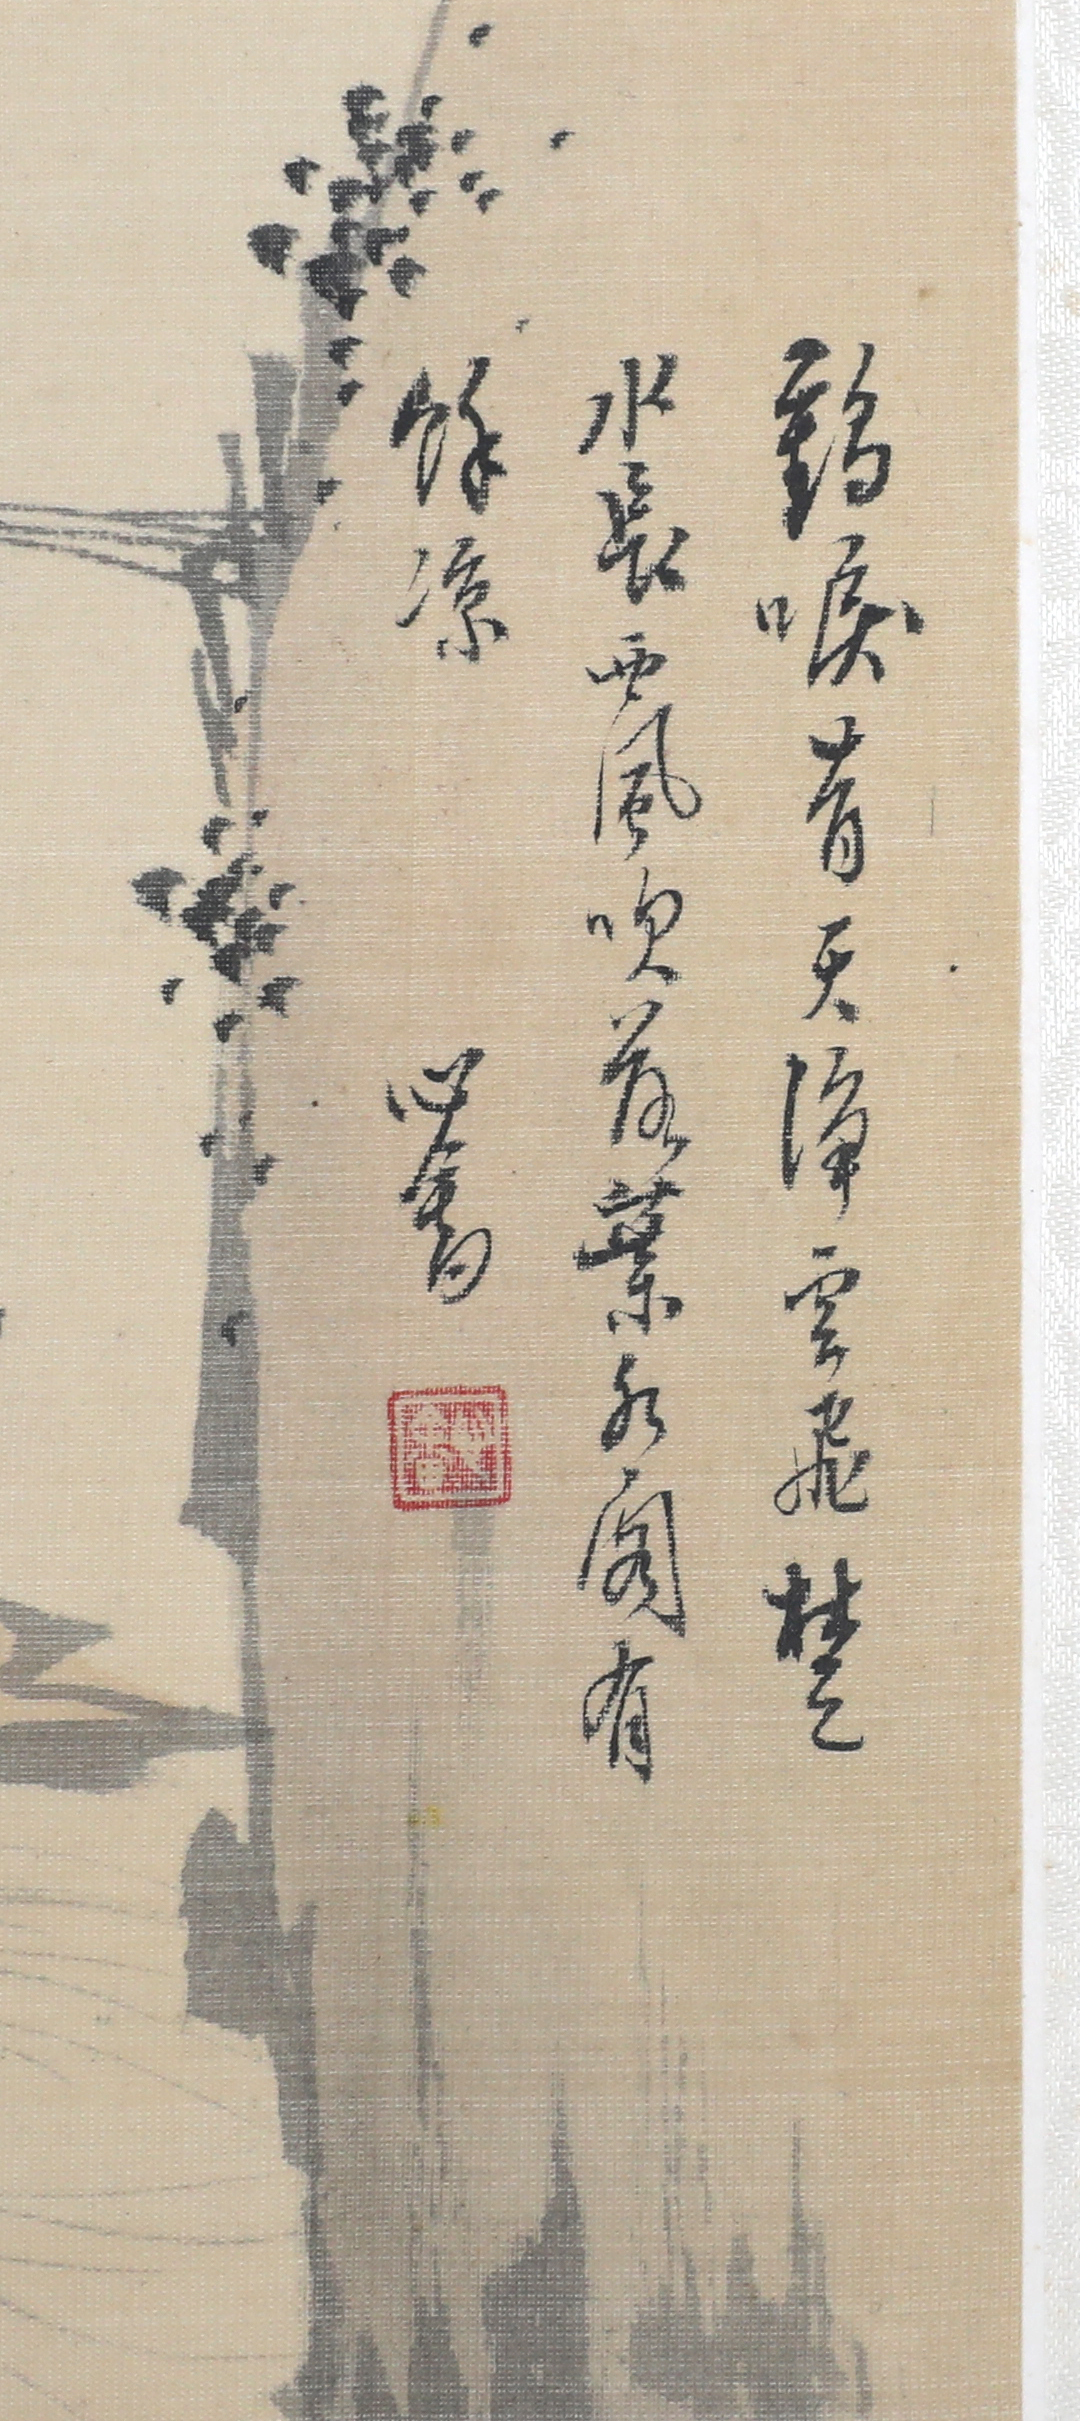 鶴唳青天淨雲飛楚
水長西風吹落葉水閣有
餘涼
心畬